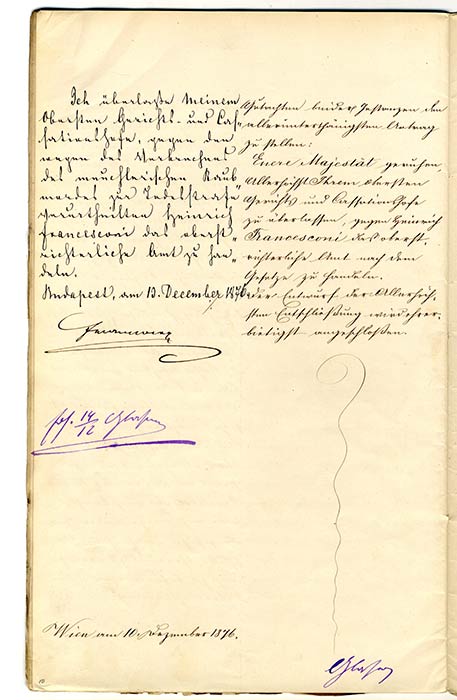 Ich überlasse Meinem
Obersten Gerichts- und Cas-
sationshofe, gegen den
wegen des Verbrechens
des meuchlerischen Raub-
mordes zur Todesstrafe
verurtheilten Heinrich
Francesconi das oberst-
richterliche Amt zu han-
deln.
Budapest, am 13. December 1876.
14/12 Glaser
Gutachten beider Instanzen den
allerunterthänigsten Antrag
zu stellen:
Euere Majestät geruhen,
Allerhöchst Ihrem obersten
Gerichts und Cassationshofe
zu überlassen, gegen Heinrich
Francesconi das oberst-
richterliche Amt nach dem
Gesetze zu handeln.
Der Entwurf der Allerhöch-
sten Entschließung wird ehrer-
bietigst angeschloßen.
Wien am 10. Dezember 1876.
Glaser